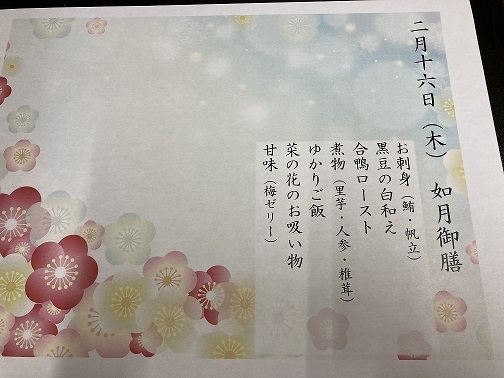 二月十六日（木）　如月御膳
お刺身（鮪・帆立）
黒豆の白和え
合鴨ロースト
煮物（里芋・人参・椎茸）
ゆかりご飯
菜の花のお吸い物
甘味（梅ゼリー）